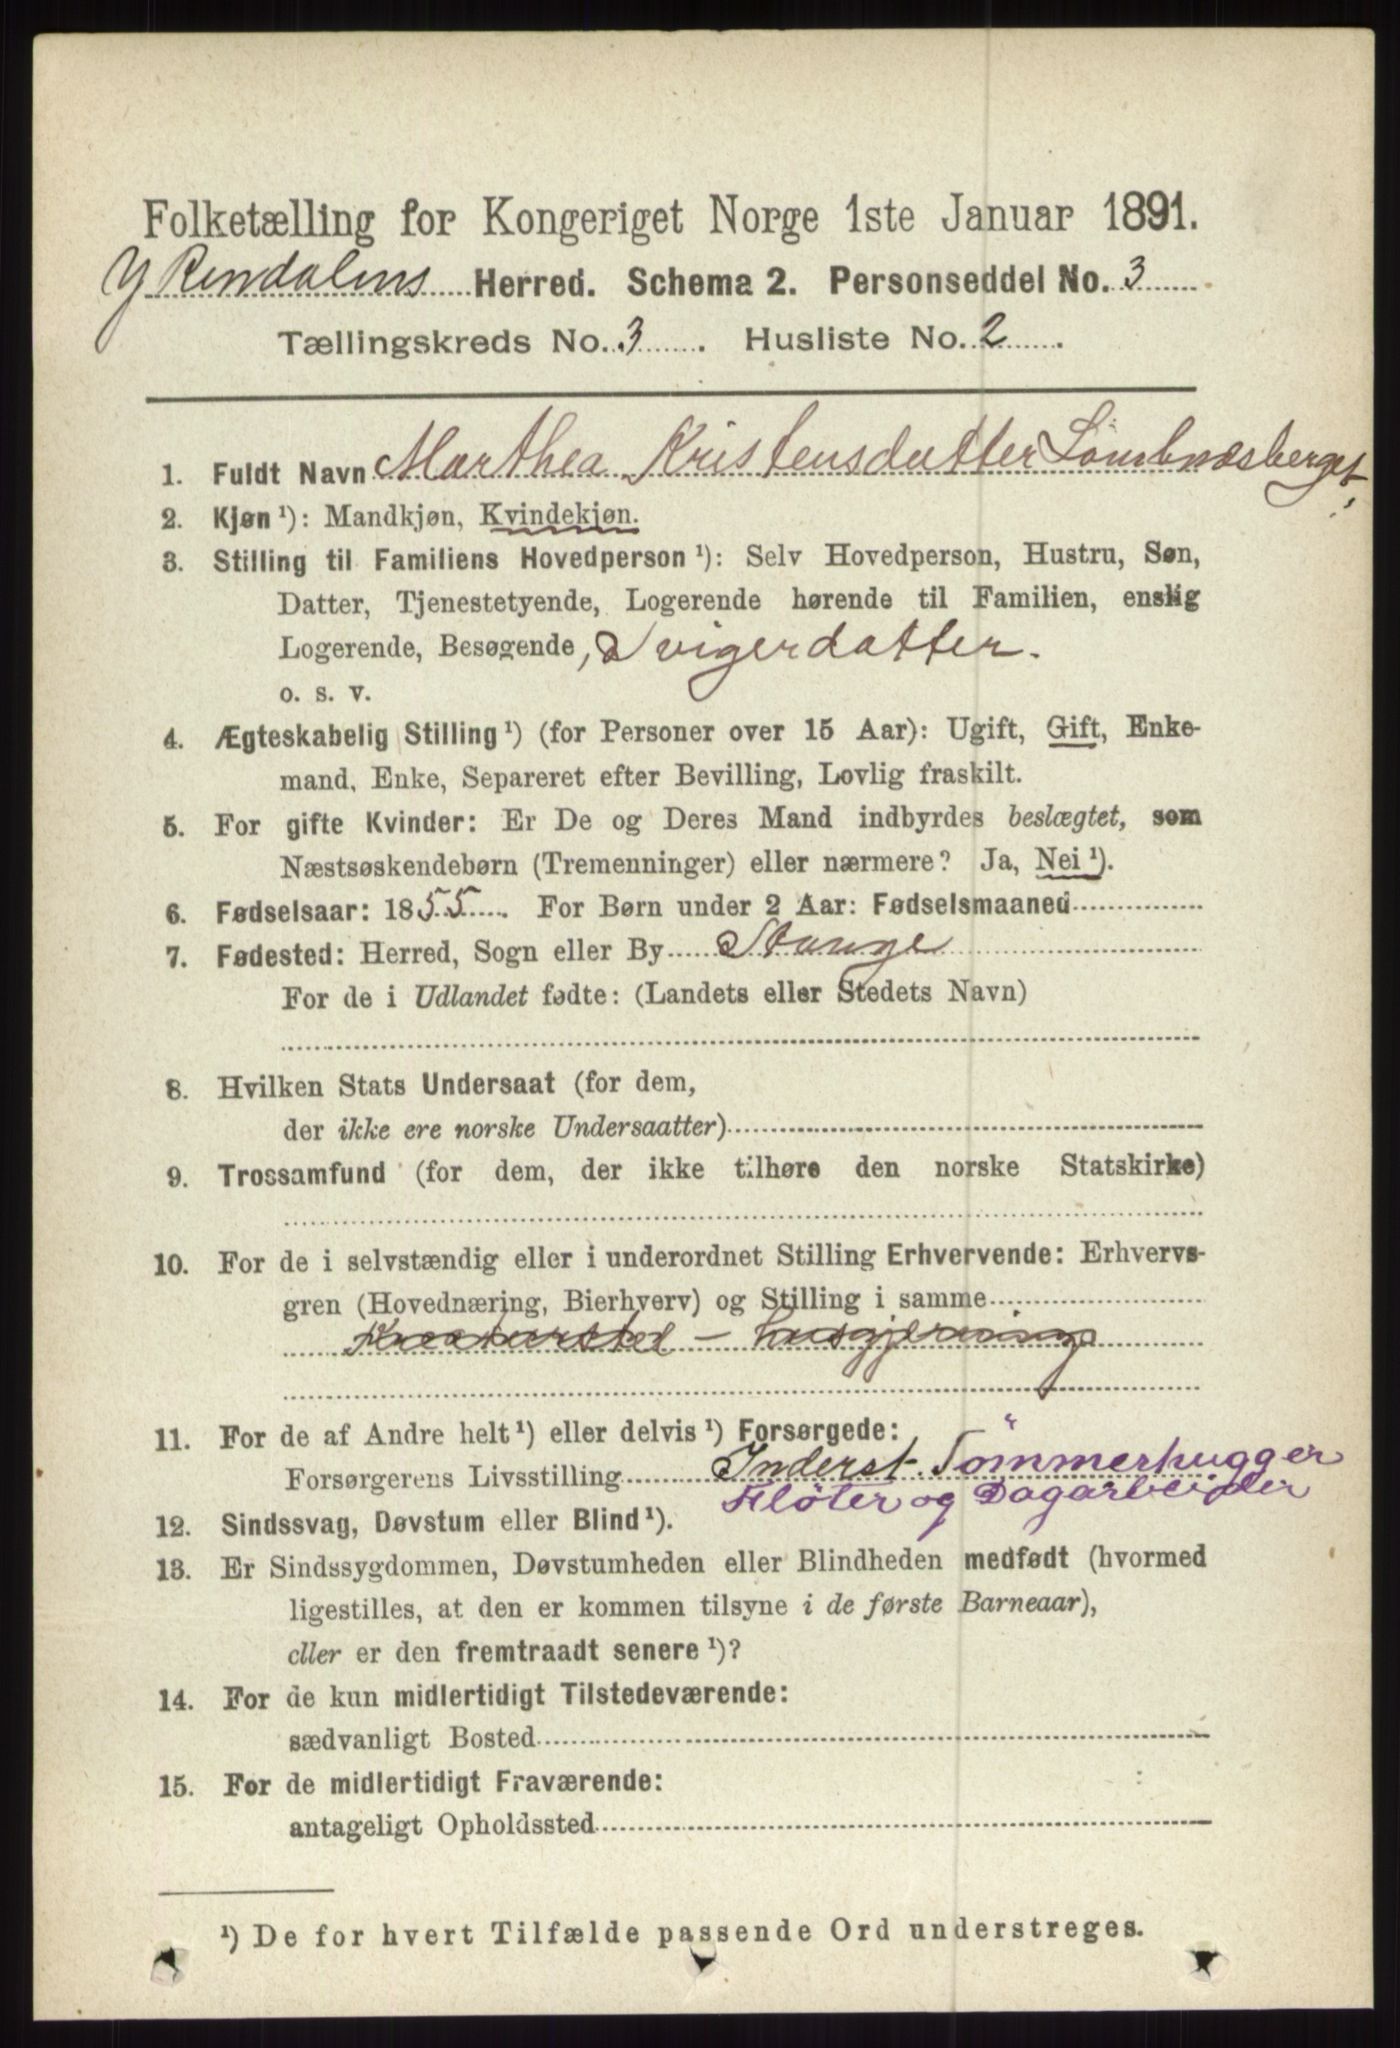 Folketælling for Kongeriget Norge 1ste Januar 1891.
Y Rendalens Herred. Schema 2. Personseddel No. 3
Tællingskreds No. 3. Husliste No. 2.
1. Fuldt Navn Marthea Kristensdatter Lombnæsberget
2. Kjøn ¹): Mandkjøn, Kvindekjøn.
3. Stilling til Familiens Hovedperson ¹): Selv Hovedperson, Hustru, Søn,
Datter, Tjenestetyende, Logerende hørende til Familien, enslig
Logerende, Besøgende, Svigerdatter.
o. s. v.
4. Ægteskabelig Stilling ¹) (for Personer over 15 Aar): Ugift, Gift, Enke-
mand, Enke, Separeret efter Bevilling, Lovlig fraskilt.
5. For gifte Kvinder: Er De og Deres Mand indbyrdes beslægtet, som
Næstsøskendebørn (Tremenninger) eller nærmere? Ja, Nei ¹).
6. Fødselsaar: 1855. For Børn under 2 Aar: Fødselsmaaned
7. Fødested: Herred, Sogn eller By Stange
For de i Udlandet fødte: (Landets eller Stedets Navn)
8. Hvilken Stats Undersaat (for dem,
der ikke ere norske Undersaatter)
9. Trossamfund (for dem, der ikke tilhøre den norske Statskirke)
10. For de i selvstændig eller i underordnet Stilling Erhvervende: Erhvervs-
gren (Hovednæring, Bierhverv) og Stilling i samme
Kreaturstel – husgjerning
11. For de af Andre helt ¹) eller delvis ¹) Forsørgede:
Forsørgerens Livsstilling Inderst. Tömmerhugger
Flöter og Dagarbeider
12. Sindssvag, Døvstum eller Blind ¹).
13. Er Sindssygdommen, Døvstumheden eller Blindheden medfødt (hvormed
ligestilles, at den er kommen tilsyne i de første Barneaar),
eller er den fremtraadt senere ¹)?
14. For de kun midlertidigt Tilstedeværende:
sædvanligt Bosted
15. For de midlertidigt Fraværende:
antageligt Opholdssted
¹) De for hvert Tilfælde passende Ord understreges.